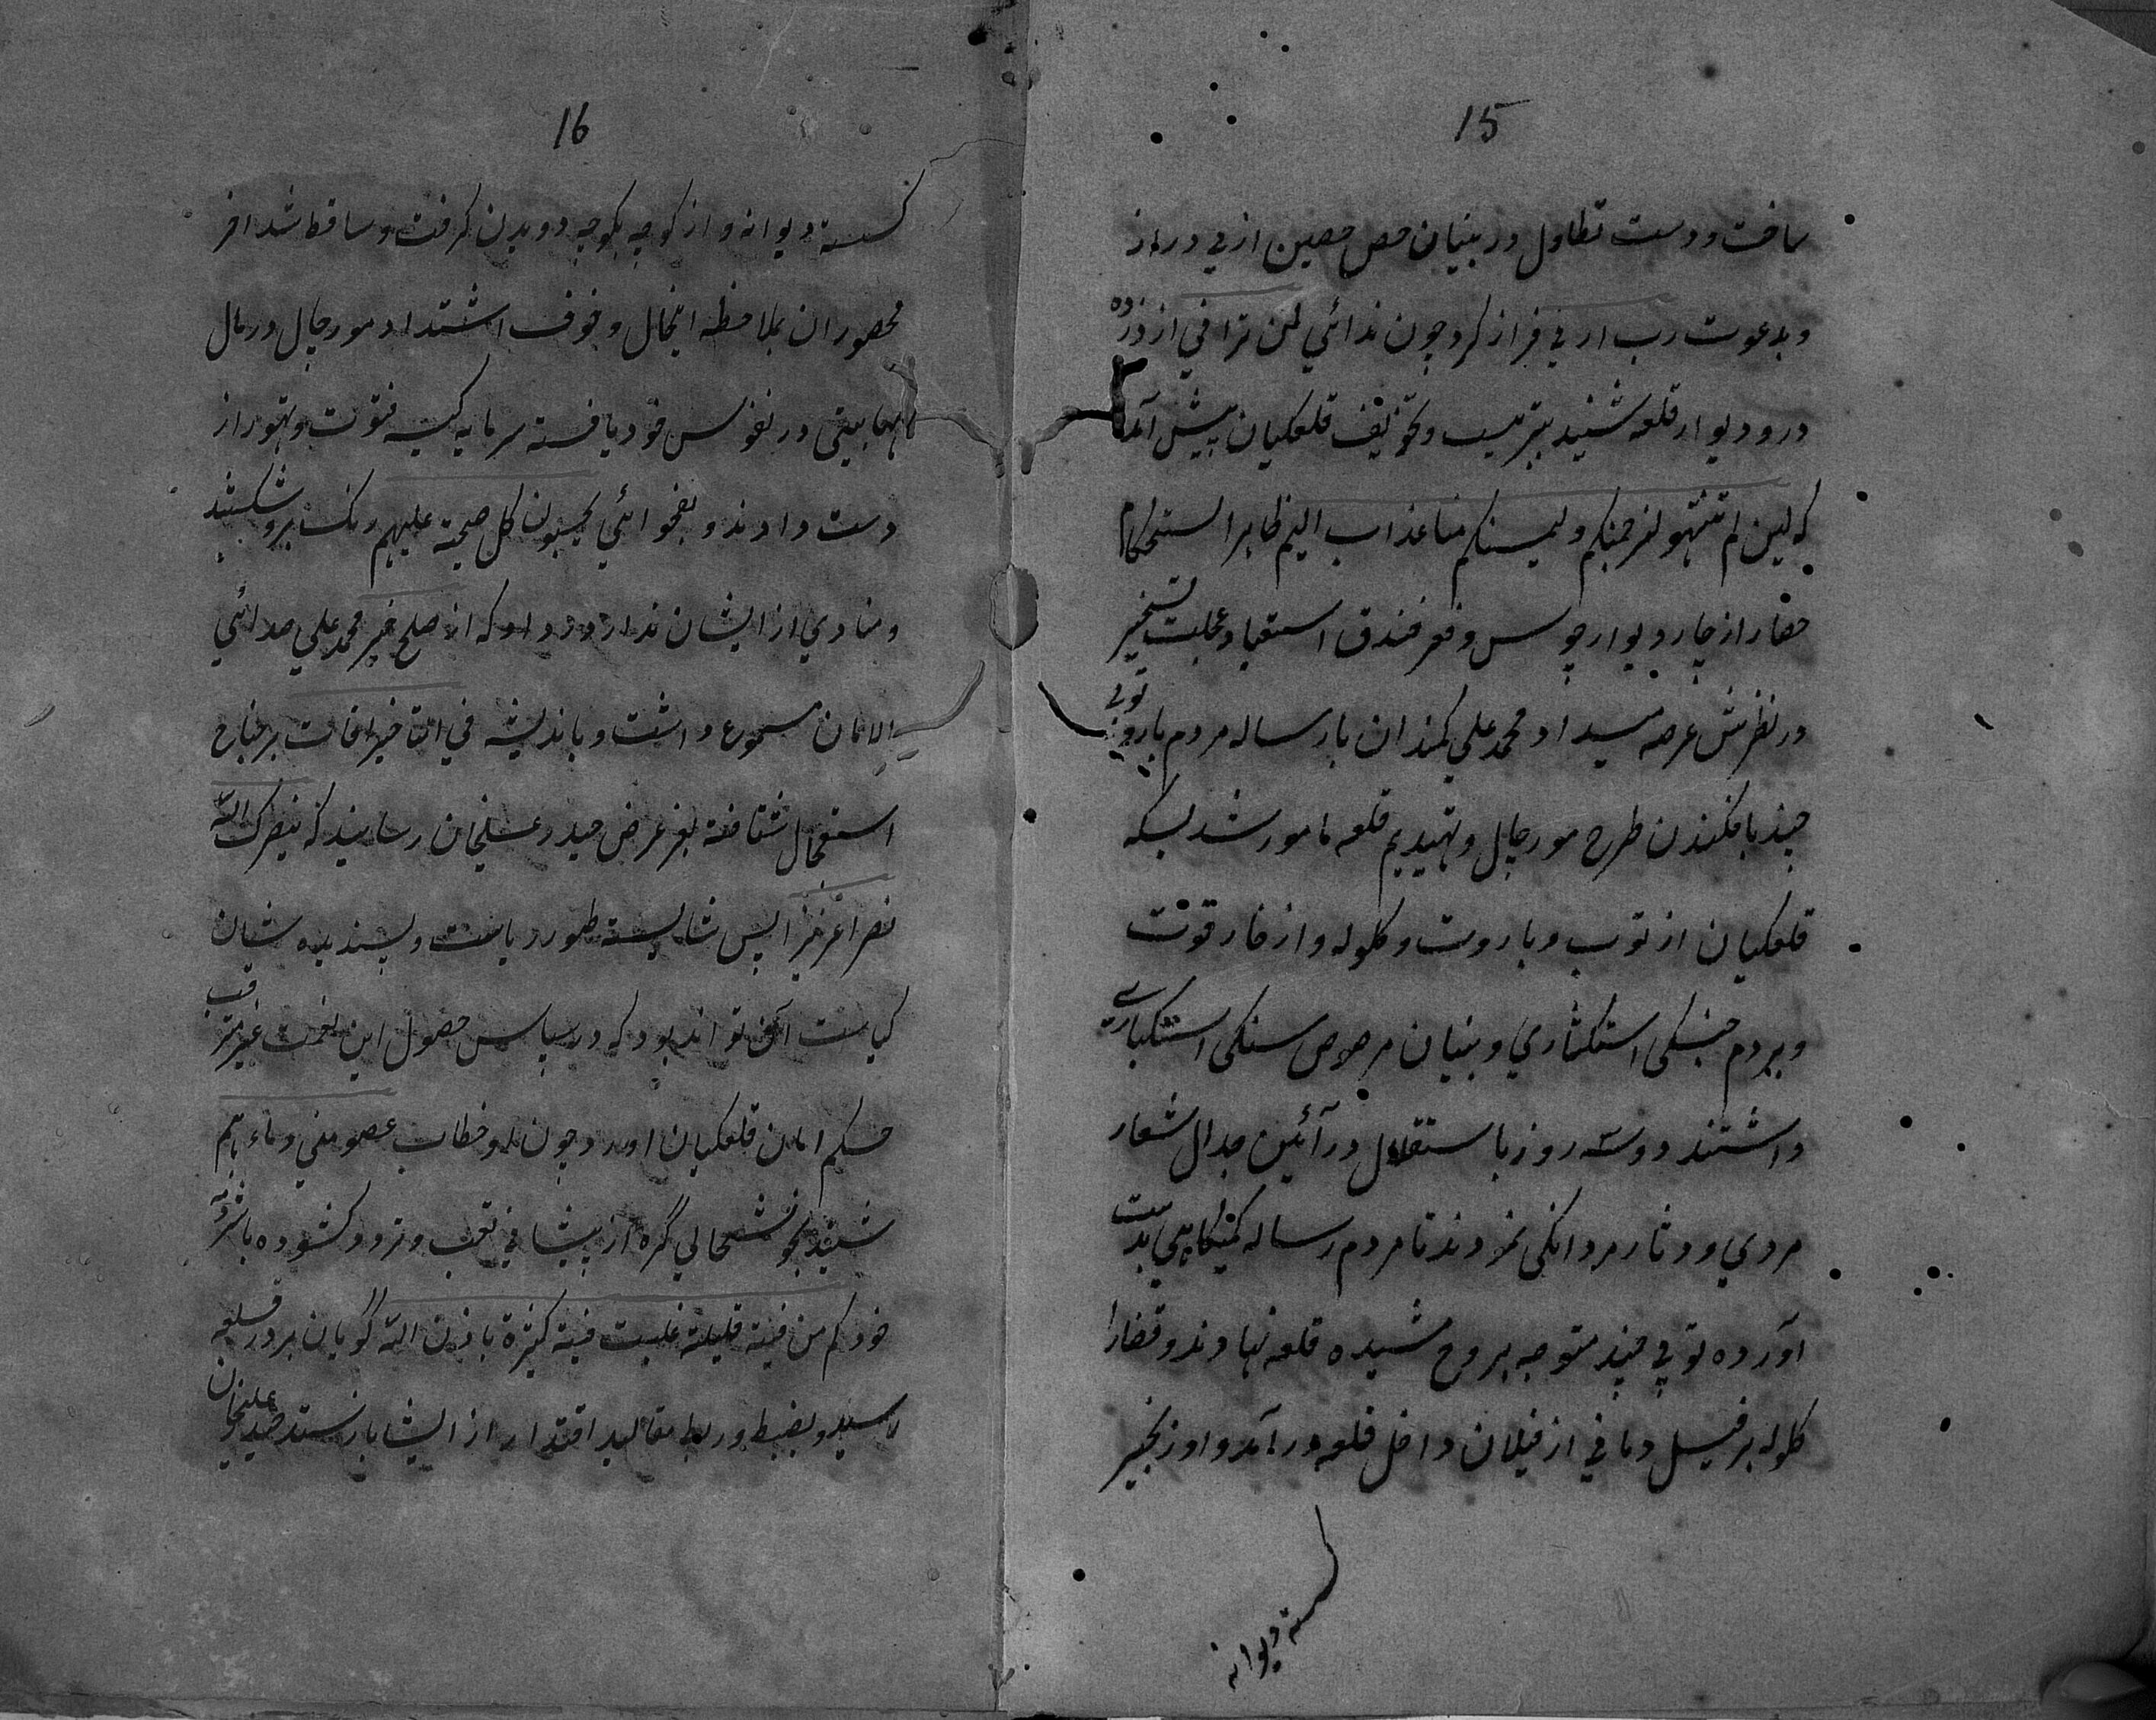 15
ساخت و دست تطاول در بنیان حصن حصین ارنی دراز
و بدعوت رب ارنی فراز کرد چون ندائی لن ترانی از زده
در و دیوار قلعه شنید بترهیب و تخویف قلعکیان پیش آمد
که لین لم تنتهو لنرجمنکم ولیمسنکم منا عذاب الیم ظاهرا استحکام
حصار از چار دیوار چوس و قعر خندق استعباد عجلت تسخیر
در نظرش عرصه میداد محمد علی کمندان با رساله مردم بارو توپی
چند بافکندن طرح مورچال و تهدیم قلعه مامور شد بسکه
قلعکیان از توپ و باروت و کلوله و ازخار قوت
و مردم جنکی استکثاری و بنیان مرصوص سنکی استکباری
داشتند دو سه روز باستقلال در آئین جدال شعار
مردی و دثار مردانکی نمودند تا مردم رساله کمینکاهی بدست
آورده توپی چند متوجه بروج مشیده قلعه نهادند و قضارا
کلوله بر فیل دمانی از فیلان داخل قلعه در آمد و او زنجیر
کسسته دیوانه
16
کسسته دیوانه و از کوچه بکوچه دویدن کرفت و ساقط شد اخر
محصوران بملاحظه اینحال و خوف اشتداد مورچال و رمال
مهابیتی در نفوس خود یافته سرمایه کیسه فتوت و تهور از
دست دادند و بفحوائی یحسبون کل صیحة علیهم رنک برو شکستند
و منادی از ایشان ندا در داد که الصلح خیر محمد علی صدائی
الامان مسموع داشت و باندیشه فی التاخیر افات بر جناح
استعجال شتافته بعز عرض حیدر علیخان رسانید که ینصرک الله
نصرا عزیزا پس شایسته طور ریاست و پسندیده شان
کیاست آن تواند بود که در سپاس حصول این نعمت غیر مترقب
حکم امان قلعکیان اورد چون او خطاب عصمو منی دماءهم
شنید بخوشحالی گره از پیشانی تعب و تردد کشوده با شرذمه
خود کم من فیة قلیلة غلبت فیة کثیرة باذن الله گویان بر در قلعه
رسید و بضبط و ربط مقالید اقتدار از ایشان باز ستد حیدر علیخان